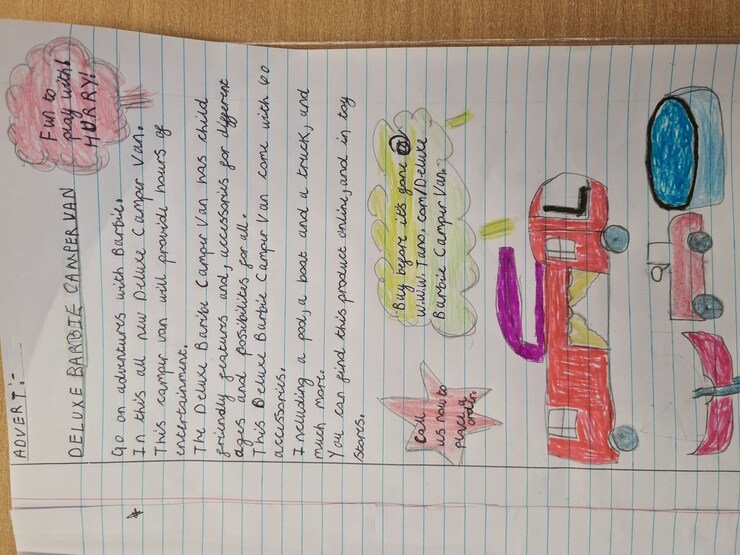 ADVERT:-
Fun to
play with!
HURRY!
DELUXE BARBIE CAMPER VAN
Go on adventures with Barbie.
In this all new Deluxe Camper Van.
This camper van will provide hours of
entertainment.
The Deluxe Baribe Camper Van has child
friendly features and, accessories for different
ages and possibilities for all.
This Deluxe Barbie Camper Van come with 60
accessories.
Including a pool, a boat and a truck, and
much more.
You can find this product online, and in toy
stores.
Call
us now to
place a
order.
Buy before it's gone @
www.Tano.com/Deluxe
Barbie Camper Van.